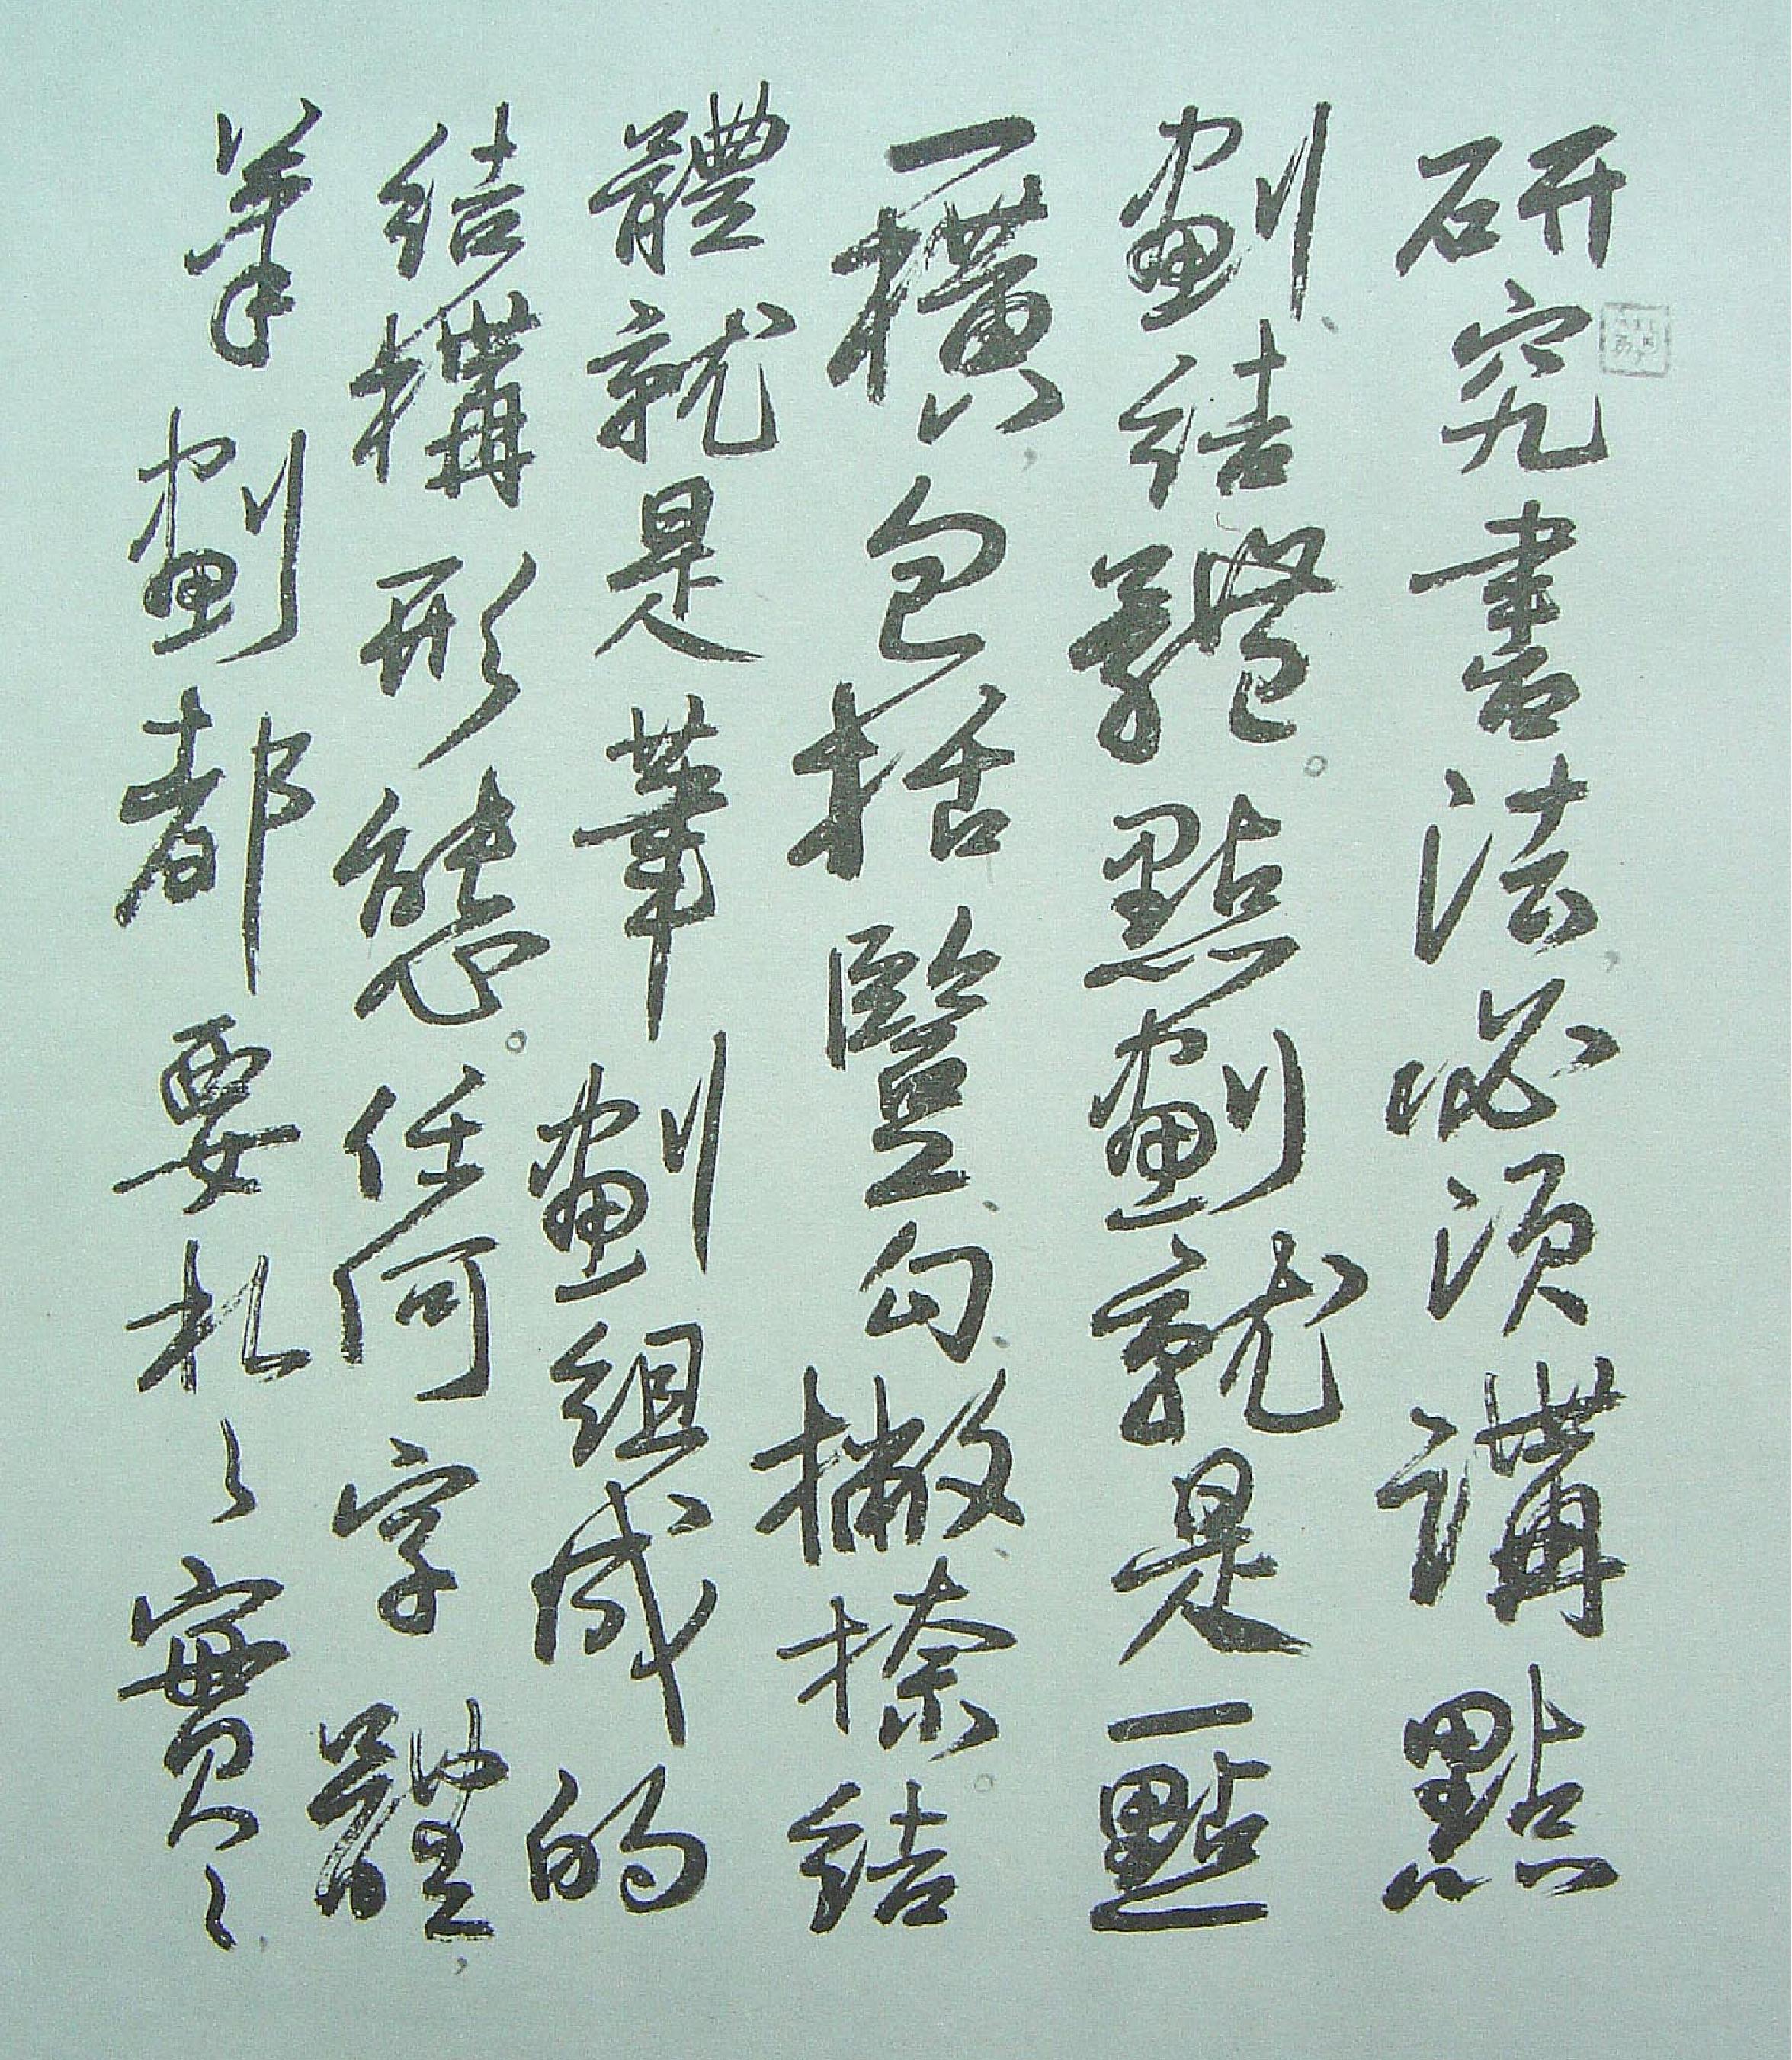 研究書法,必須講點
劃、結體。點劃就是一點
一橫,包括豎、勾、撇、捺。結
體就是筆劃組成的
結構形態。任何字體,
筆劃都要扎々實々,